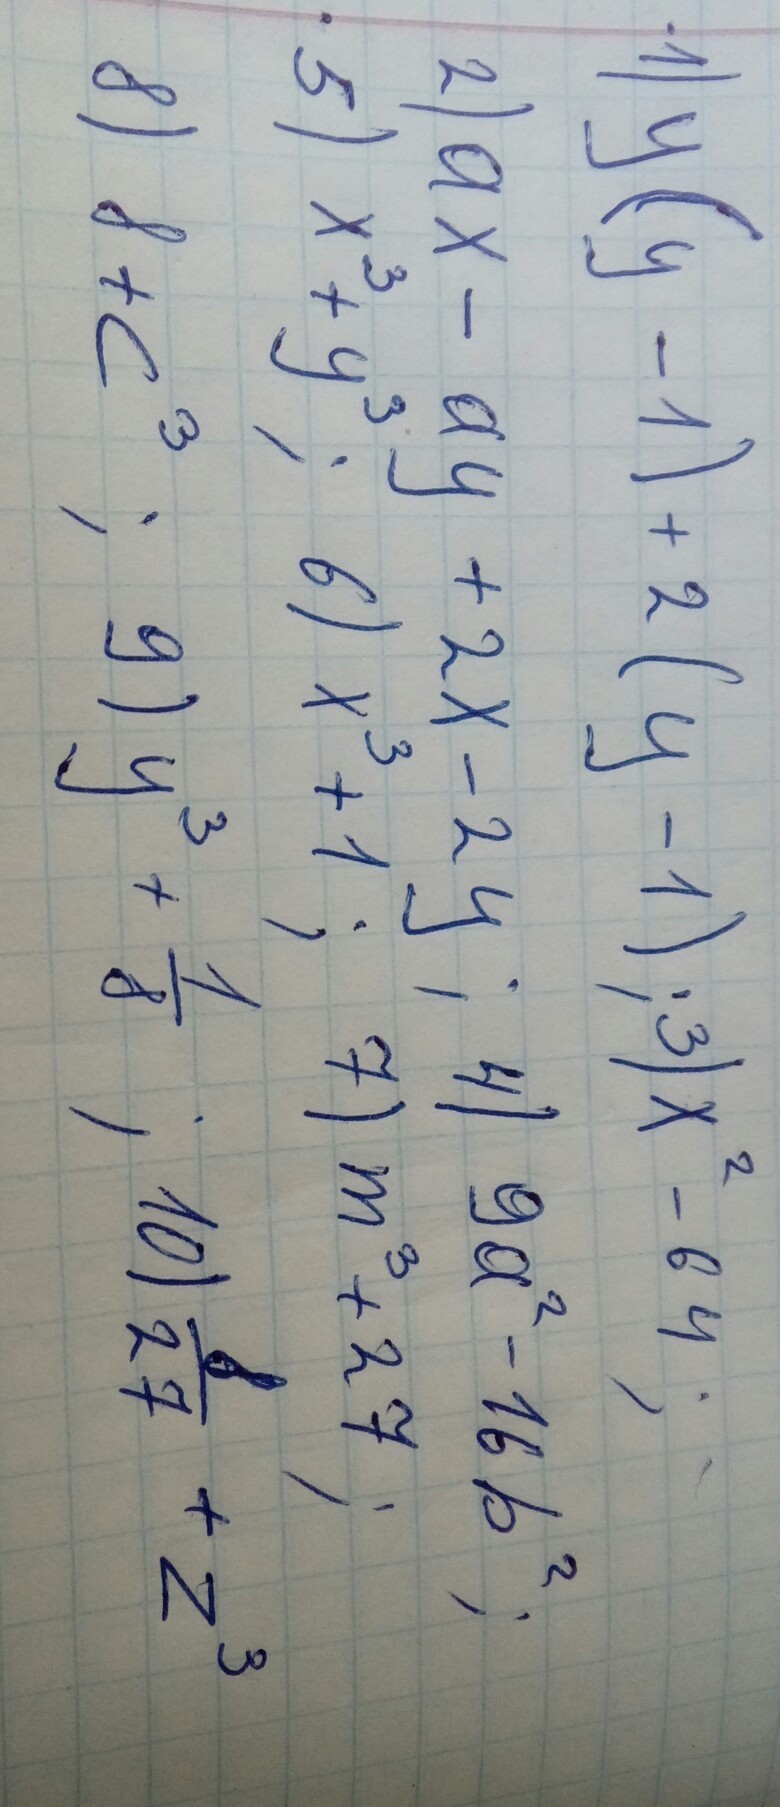 1) y(y-1)+2(y-1); 3) x²-64;
2) ax-ay+2x-2y; 4) 9a²-16b²;
5) x³+y³; 6) x³+1; 7) m³+27;
8) 8+c³; 9) y³+1/8; 10) 8/27+z³